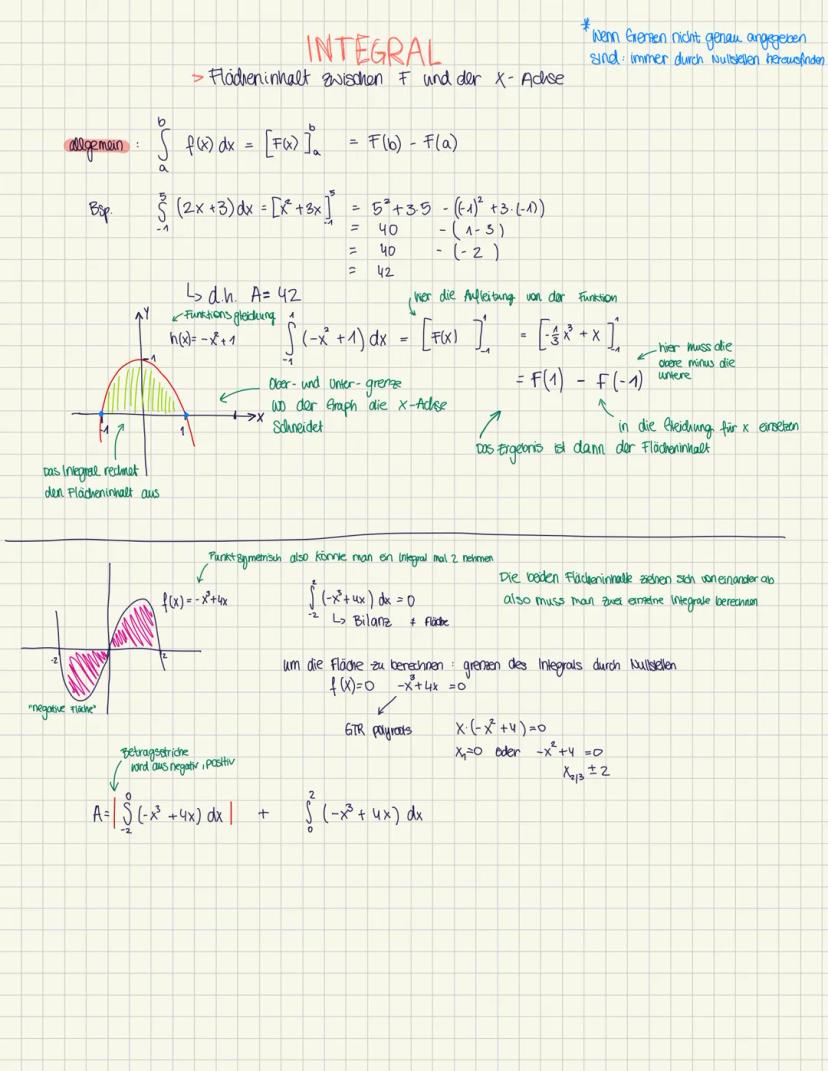 INTEGRAL
> Flächeninhalt zwischen F und der X-Achse
* Wenn Grenzen nicht genau angegeben
sind: immer durch Nullstellen herausfinden
allgemein : ∫_a^b f(x) dx = [F(x)]_a^b = F(b) - F(a)
Bsp. ∫_-1^5 (2x+3) dx = [x²+3x]_-1^5 = 5²+3·5 - ((-1)² +3·(-1))
= 40 -(1-3)
= 40 -(-2)
= 42
↳ d.h. A= 42
Funktionsgleichung
hier die Aufleitung von der Funktion
h(x)= -x²+1
∫_-1^1 (-x²+1) dx = [F(x)]_-1^1 = [-1/3 x³ + x]_-1^1
hier muss die
obere minus die
untere
= F(1) - F(-1)
in die Gleichung für x einsetzen
Das Ergebnis ist dann der Flächeninhalt
Ober- und Unter-grenze
wo der Graph die X-Achse
Schneidet
Y
1
-1
1
X
Das Integral rechnet
den Flächeninhalt aus
Punktsymmetrisch also könnte man ein Integral mal 2 nehmen
f(x) = -x³+4x
∫_-2^2 (-x³+4x) dx = 0
↳ Bilanz ≠ Fläche
Die beiden Flächeninhalte ziehen sich voneinander ab
also muss man zwei einzelne Integrale berechnen
-2
2
"negative Fläche"
um die Fläche zu berechnen : grenzen des Integrals durch Nullstellen
f(x)=0 -x³+4x =0
GTR polyroots
x·(-x²+4)=0
x₁=0 oder -x²+4 =0
x₂/₃ ±2
Betragsstriche
wird aus negativ, positiv
A= |∫_-2^0 (-x³+4x) dx| + ∫_0^2 (-x³+4x) dx